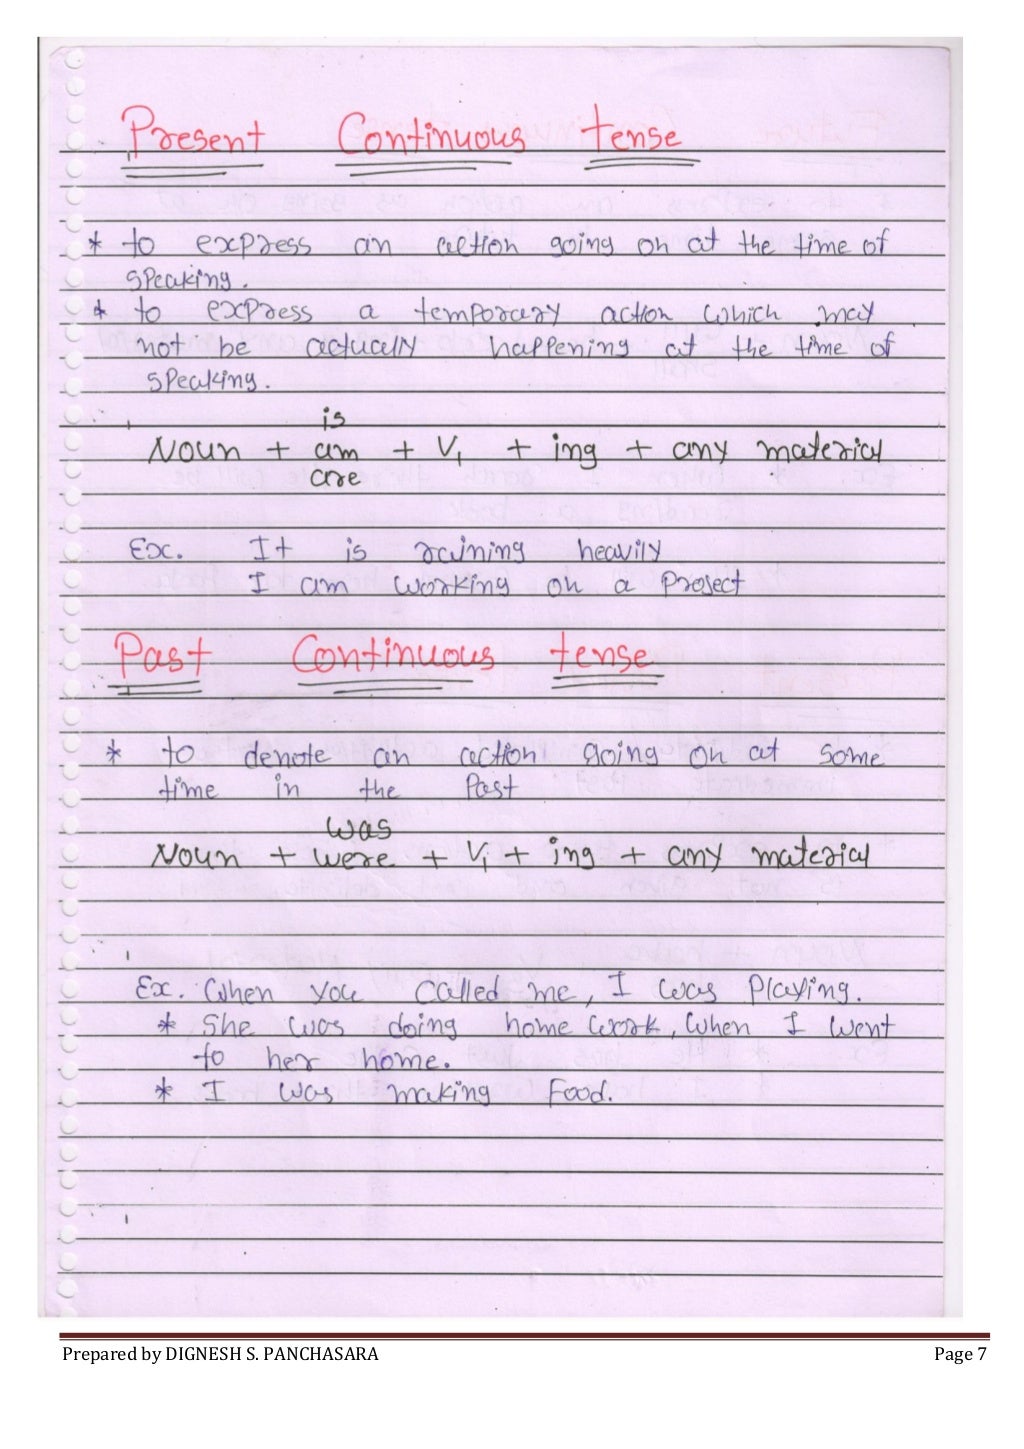 Present Continuous tense
* to express an action going on at the time of
speaking.
* to express a temporary action which may
not be actually happening at the time of
speaking.
is
Noun + am + V₁ + ing + any material
are
Ex. It is raining heavily
I am working on a Project
Past Continuous tense
* to denote an action going on at some
time in the Past
was
Noun + were + V₁ + ing + any material
Ex. When you called me, I was Playing.
* She was doing home work, when I went
to her home.
* I was making Food.
Prepared by DIGNESH S. PANCHASARA Page 7